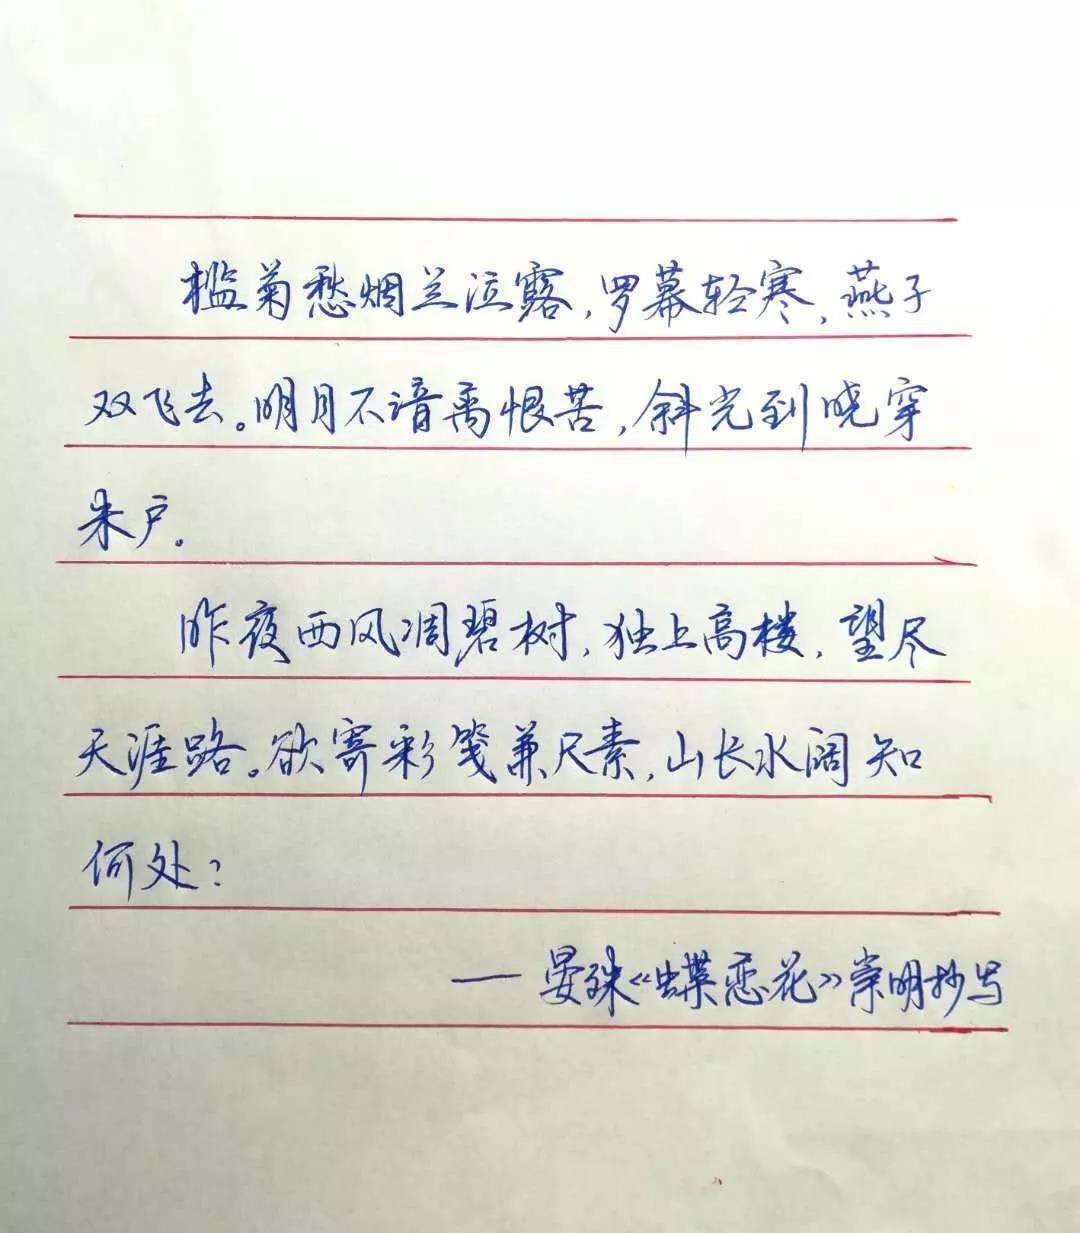 槛菊愁烟兰泣露,罗幕轻寒,燕子
双飞去。明月不谙离恨苦,斜光到晓穿
朱户。
昨夜西风凋碧树,独上高楼,望尽
天涯路。欲寄彩笺兼尺素,山长水阔知
何处?
— 晏殊《蝶恋花》崇明抄写